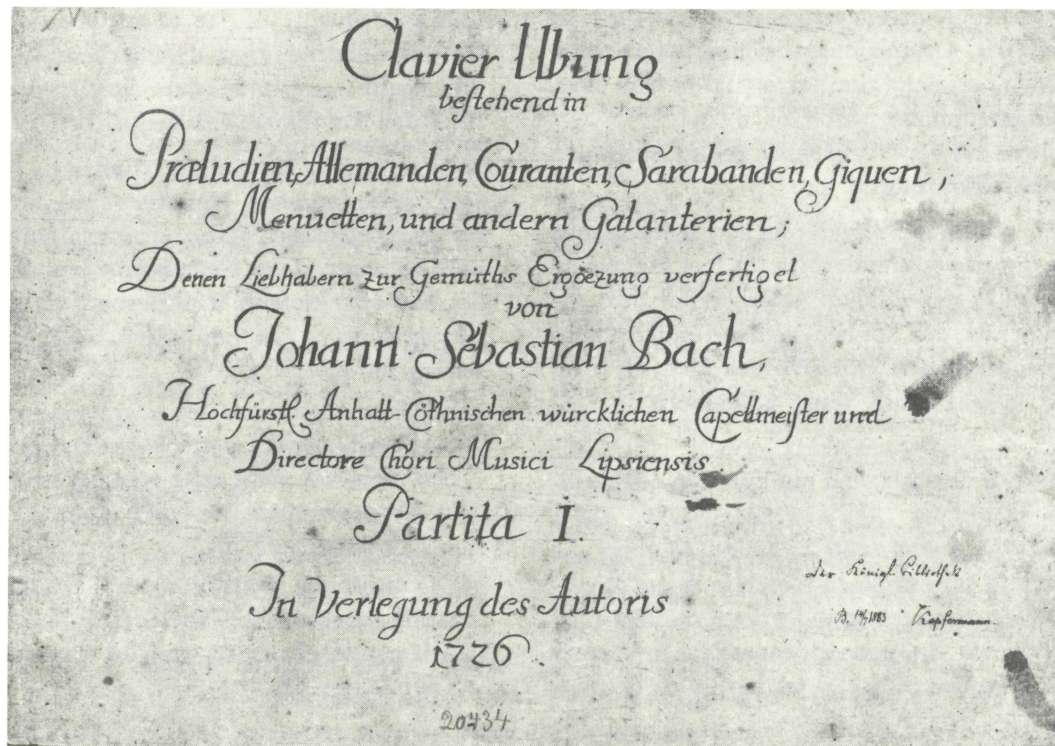 Clavier Ubung
bestehend in
Præludien, Allemanden, Couranten, Sarabanden, Giquen,
Menuetten, und andern Galanterien;
Denen Liebhabern zur Gemüths Ergoezung verfertiget
von
Johann Sebastian Bach,
Hochfürstl. Anhalt-Cöthnischen würcklichen Capellmeister und
Directore Chori Musici Lipsiensis.
Partita I.
In Verlegung des Autoris
1726.
Der Königl. Bibliothek
B. 1883 Kopfermann.
20434